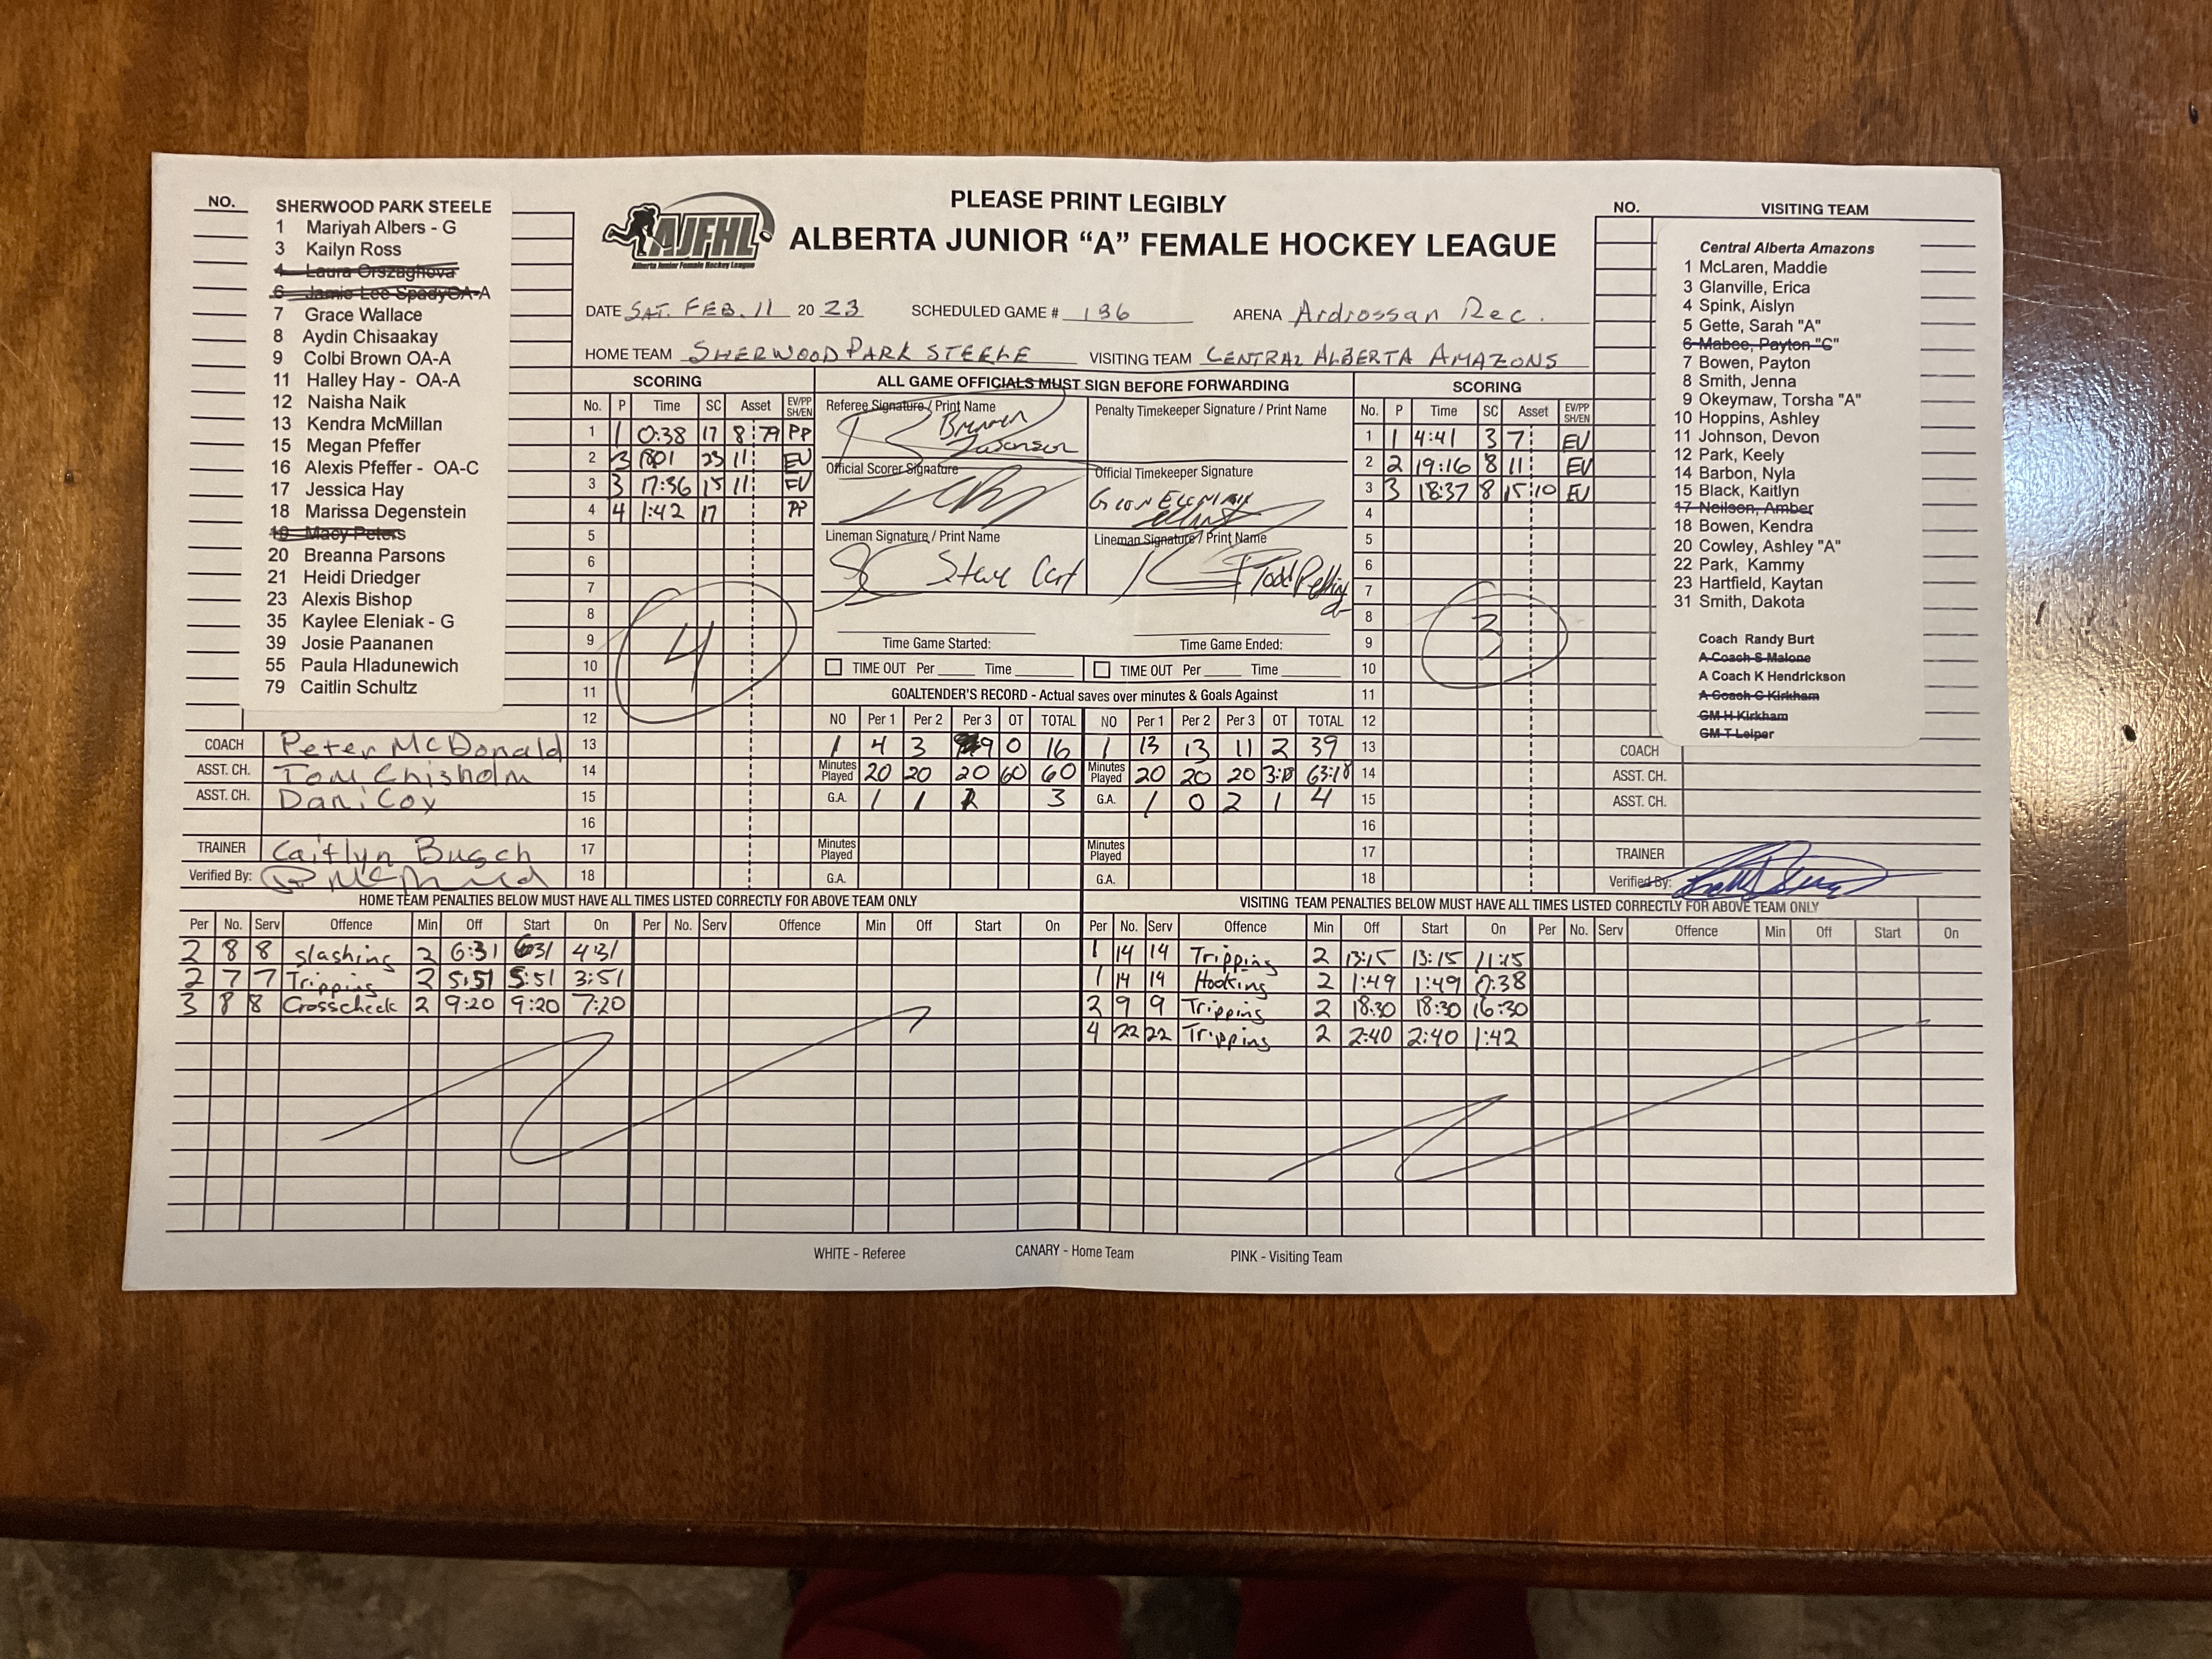 PLEASE PRINT LEGIBLY
AJFHL
Alberta Junior Female Hockey League
ALBERTA JUNIOR "A" FEMALE HOCKEY LEAGUE
DATE SAT. FEB. 11 20 23 SCHEDULED GAME # 136 ARENA Ardrossan Rec.
HOME TEAM SHERWOOD PARK STEELE VISITING TEAM CENTRAL ALBERTA AMAZONS
NO.
SHERWOOD PARK STEELE
1 Mariyah Albers - G
3 Kailyn Ross
4 Laura Orszaghova
6 Jamie Lee SpadyOA-A
7 Grace Wallace
8 Aydin Chisaakay
9 Colbi Brown OA-A
11 Halley Hay - OA-A
12 Naisha Naik
13 Kendra McMillan
15 Megan Pfeffer
16 Alexis Pfeffer - OA-C
17 Jessica Hay
18 Marissa Degenstein
19 Macy Peters
20 Breanna Parsons
21 Heidi Driedger
23 Alexis Bishop
35 Kaylee Eleniak - G
39 Josie Paananen
55 Paula Hladunewich
79 Caitlin Schultz
COACH Peter McDonald
ASST. CH. Tom Chisholm
ASST. CH. Dani Cox
TRAINER Caitlyn Busch
Verified By:
SCORING
No. P Time SC Asset EV/PP SH/EN
1 1 0:38 17 8 79 PP
2 3 1801 23 11 EV
3 3 17:36 15 11 EV
4 4 1:42 17 PP
5
6
7
8
9
10
11
12
13
14
15
16
17
18
4
ALL GAME OFFICIALS MUST SIGN BEFORE FORWARDING
Referee Signature / Print Name
Penalty Timekeeper Signature / Print Name
Official Scorer Signature
Official Timekeeper Signature
Lineman Signature / Print Name
Steve
Lineman Signature / Print Name
Todd
Time Game Started: Time Game Ended:
TIME OUT Per Time TIME OUT Per Time
GOALTENDER'S RECORD - Actual saves over minutes & Goals Against
NO Per 1 Per 2 Per 3 OT TOTAL NO Per 1 Per 2 Per 3 OT TOTAL
1 4 3 9 0 16 1 13 13 11 2 39
Minutes Played 20 20 20 60 60 Minutes Played 20 20 20 3:18 63:18
G.A. 1 1 3 G.A. 1 0 2 1 4
Minutes Played Minutes Played
G.A. G.A.
SCORING
No. P Time SC Asset EV/PP SH/EN
1 1 4:41 3 7 EV
2 2 19:16 8 11 EV
3 3 18:37 8 15 10 EV
4
5
6
7
8
9
10
11
12
13
14
15
16
17
18
3
NO. VISITING TEAM
Central Alberta Amazons
1 McLaren, Maddie
3 Glanville, Erica
4 Spink, Aislyn
5 Gette, Sarah "A"
6 Mabee, Payton "C"
7 Bowen, Payton
8 Smith, Jenna
9 Okeymaw, Torsha "A"
10 Hoppins, Ashley
11 Johnson, Devon
12 Park, Keely
14 Barbon, Nyla
15 Black, Kaitlyn
17 Neilson, Amber
18 Bowen, Kendra
20 Cowley, Ashley "A"
22 Park, Kammy
23 Hartfield, Kaytan
31 Smith, Dakota
Coach Randy Burt
A Coach S Malone
A Coach K Hendrickson
A Coach C Kirkham
GM H Kirkham
GM T Leiper
COACH
ASST. CH.
ASST. CH.
TRAINER
Verified By:
HOME TEAM PENALTIES BELOW MUST HAVE ALL TIMES LISTED CORRECTLY FOR ABOVE TEAM ONLY
Per No. Serv Offence Min Off Start On Per No. Serv Offence Min Off Start On
2 8 8 slashing 2 6:31 6:31 4:31
2 7 7 Tripping 2 5:51 5:51 3:51
3 8 8 Crosscheck 2 9:20 9:20 7:20
VISITING TEAM PENALTIES BELOW MUST HAVE ALL TIMES LISTED CORRECTLY FOR ABOVE TEAM ONLY
Per No. Serv Offence Min Off Start On Per No. Serv Offence Min Off Start On
1 14 14 Tripping 2 13:15 13:15 11:15
1 14 14 Hooking 2 1:49 1:49 0:38
2 9 9 Tripping 2 18:30 18:30 16:30
4 22 22 Tripping 2 2:40 2:40 1:42
WHITE - Referee CANARY - Home Team PINK - Visiting Team